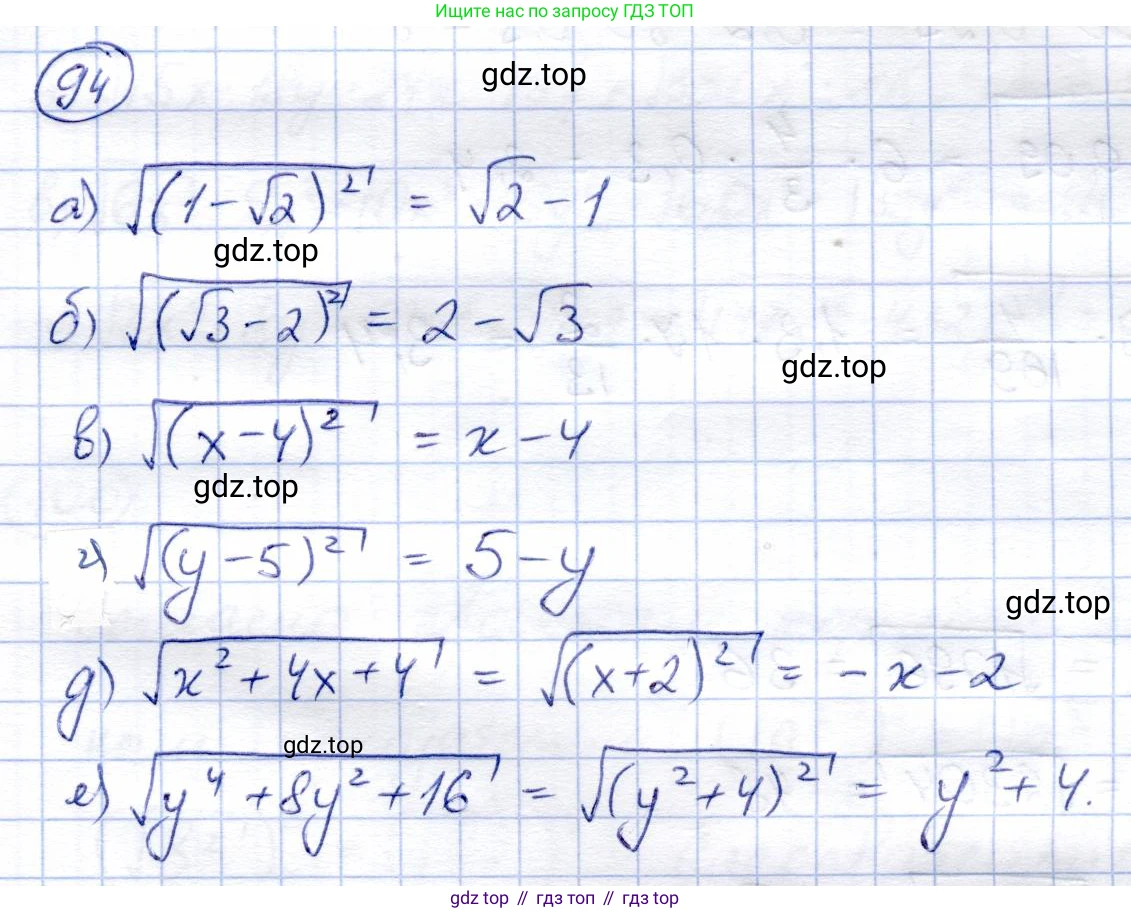 Ищите нас по запросу ГДЗ ТОП
94
gdz.top
а) √((1-√2)²) = √2 - 1
gdz.top
б) √((√3-2)²) = 2 - √3
gdz.top
в) √((x-4)²) = x - 4
gdz.top
г) √((y-5)²) = 5 - y
gdz.top
д) √(x²+4x+4) = √((x+2)²) = -x-2
gdz.top
е) √(y⁴+8y²+16) = √((y²+4)²) = y²+4.
gdz top // гдз топ // гдз top